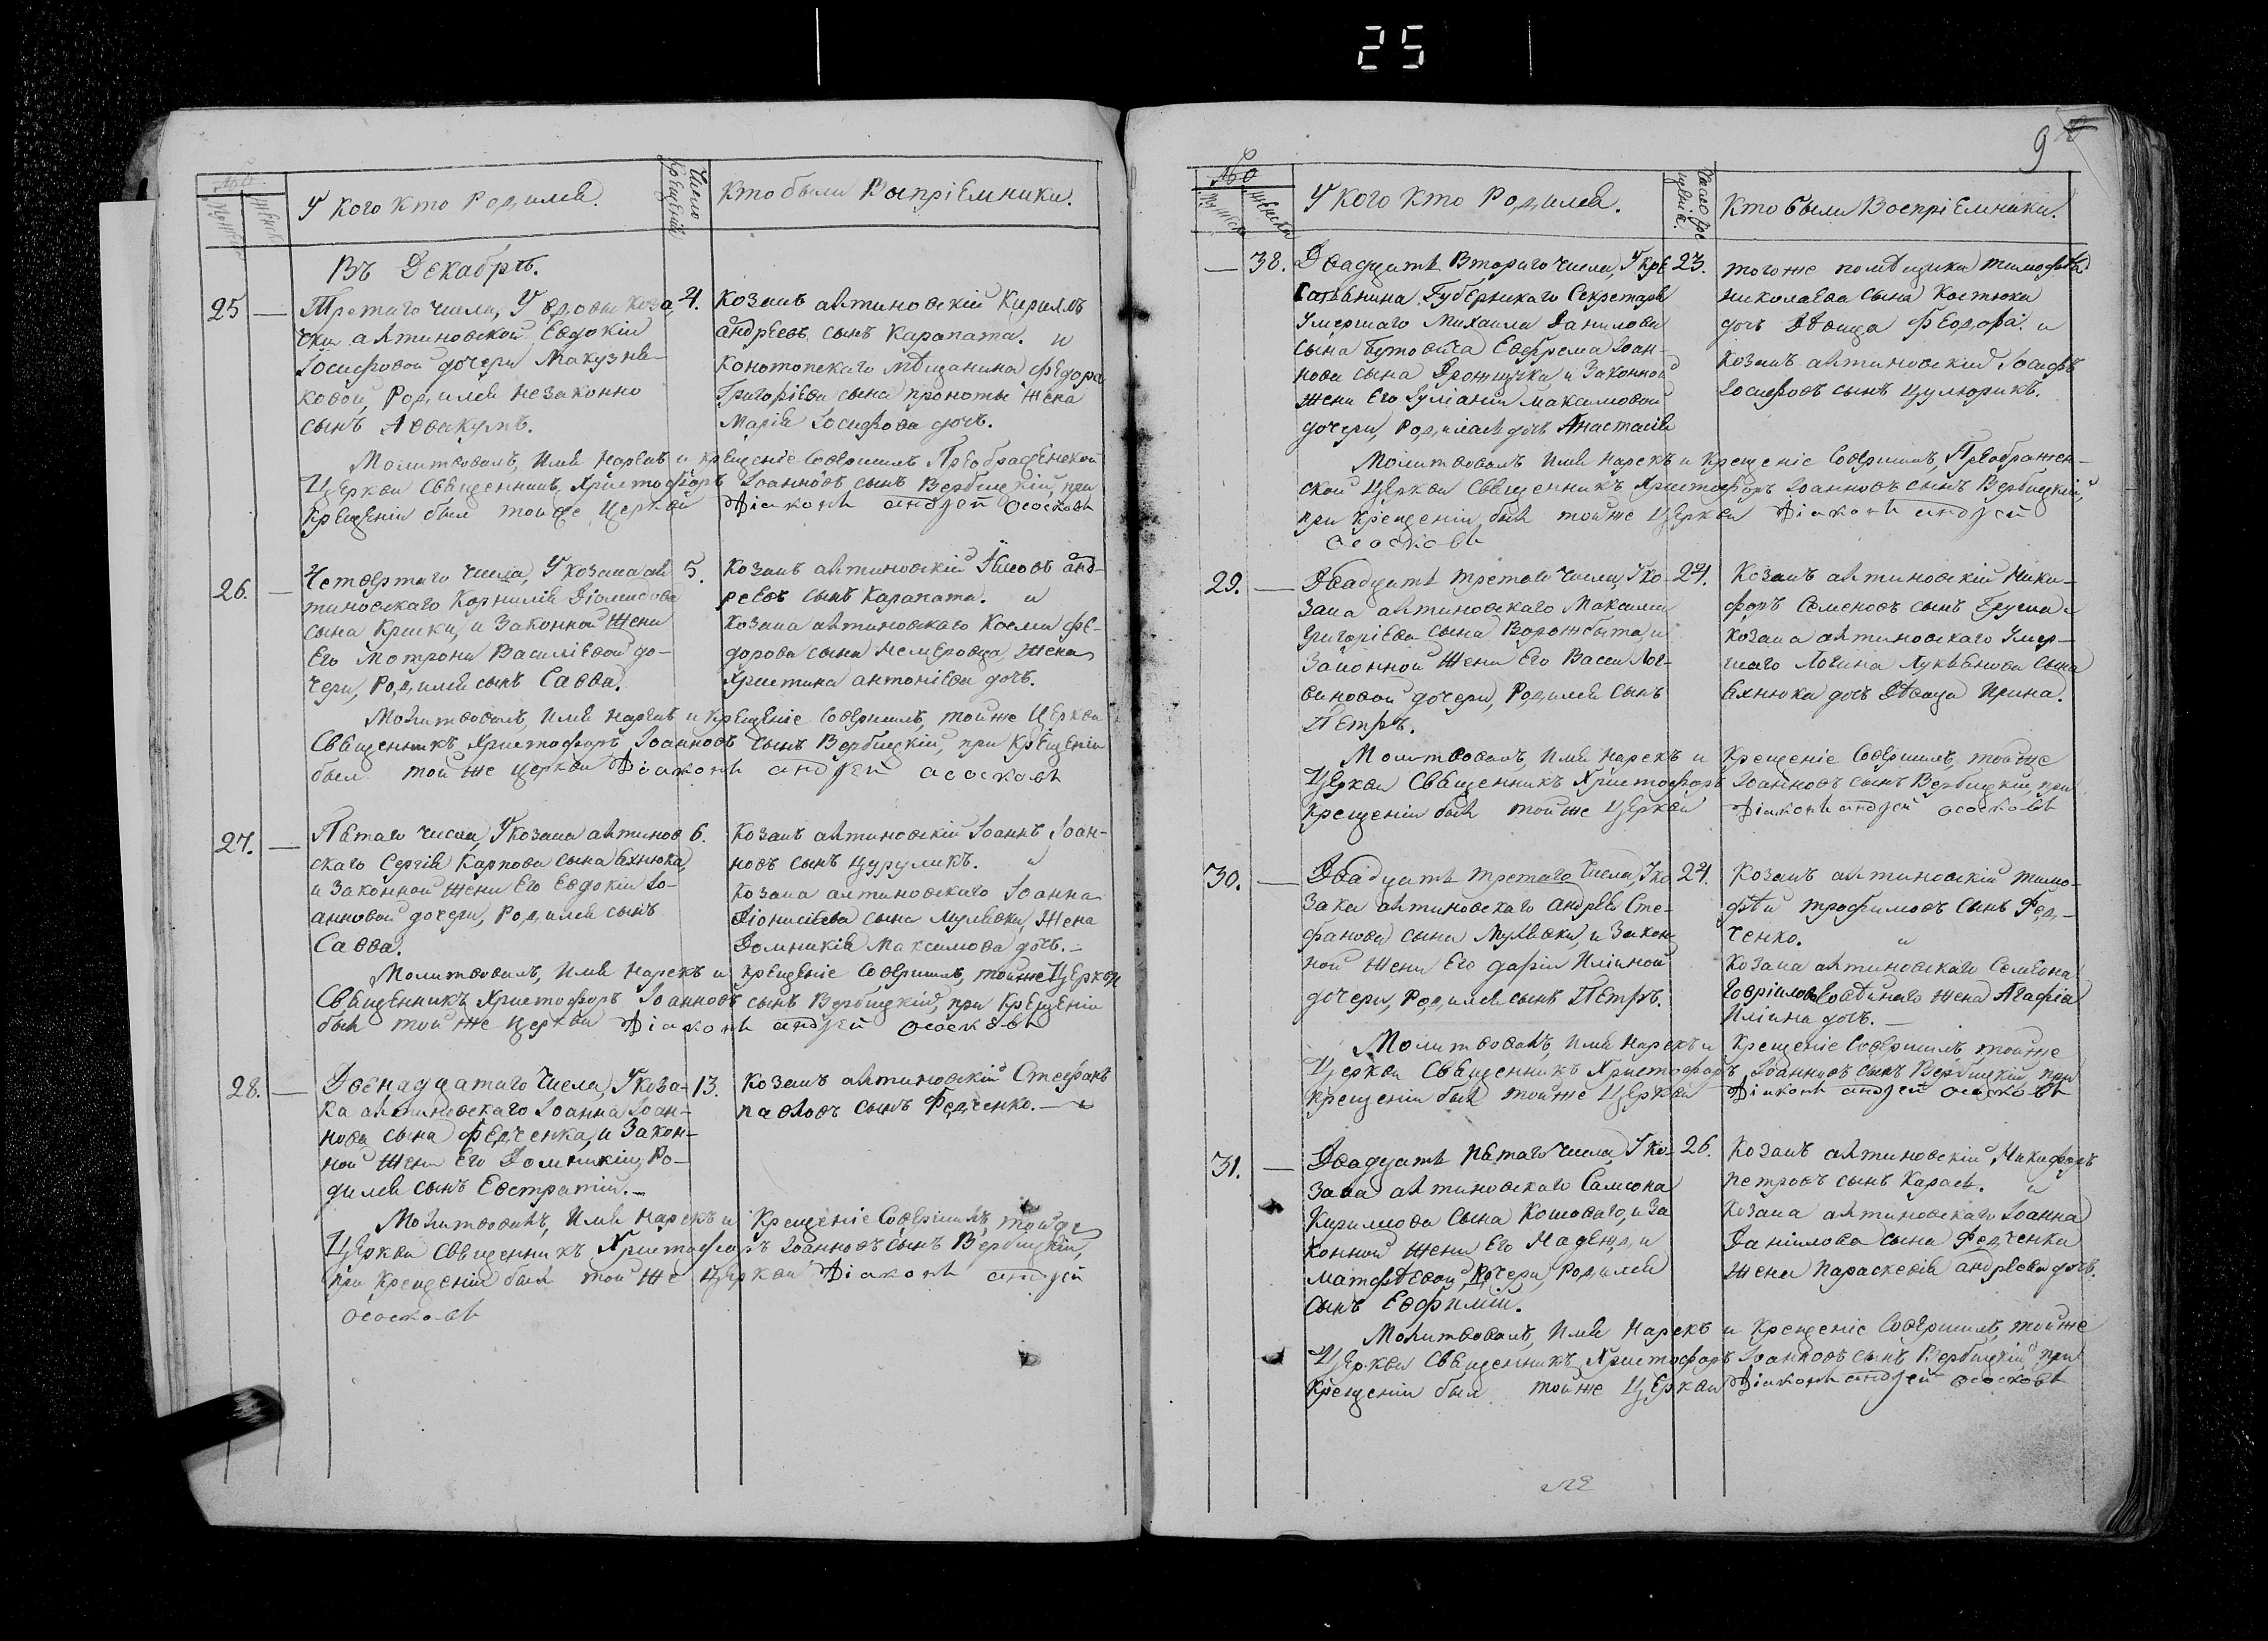 25
№
Мужеск
женск
У Кого Кто Родился.
Число Крещеній
Кто были Воспріемники.
Въ Декабрѣ.
25 — Третаго числа, У вдовы коза-
чки алтиновской Евдокіи
Іосифовой дочери Макузне-
ковой, Родился незаконно
сынъ Аввакумъ.
4.
Козакъ алтиновскій Кириллъ
андреевъ сынъ Карапата. и
Конотопскаго мѣщанина Федора
Григоріева сына прономы жена
Марія Іосифова дочь.
Молитвовалъ, Имя Нарекъ и крещеніе Совершилъ Преображенской
Церкви Священникъ Христофоръ Іоанновъ сынъ Вербицкій, при
Крещеніи былъ тойже Церкви Діаконъ андрей
26. — Четвертаго Числа, У козака ал
тиновскаго Корнилія Діомидова
сына Кришки, и Законной Жени
Его Мотрони Василіевой до-
чери, Родился сынъ Савва.
5.
Козакъ алтиновскій Іаковъ анд-
реевъ сынъ Карапата. и
Козака алтиновскаго Косми Фе-
дорова сына Немеровца, Жена
Христина антоніева дочь.
Молитвовалъ, Имя Нарекъ и Крещеніе Совершилъ, тойже Церкви
Священникъ Христофоръ Іоанновъ сынъ Вербицкій, при Крещеніи
былъ тойже церкви Діаконъ андрей
27. — Пятаго числа, У козака алтинов
скаго Сергія Карпова сына Яхнюка,
и Законной Жени Его Евдокіи Іо-
анновой дочери, Родился сынъ
Савва.
6.
Козакъ алтиновскій Іоаннъ Іоан-
новъ сынъ Цуруликъ. и
Козака алтиновскаго Іоанна
Діонисіева сына Мулявки, Жена
Домникія Максимова дочь. —
Молитвовалъ, Имя Нарекъ и Крещеніе Совершилъ, тойже Церкви
Священникъ Христофоръ Іоанновъ сынъ Вербицкій, при Крещеніи
былъ тойже Церкви Діаконъ андрей
28. — Двенадцатаго Числа, У коза-
ка алтиновскаго Іоанна Іоан-
нова сына Федченка, и Закон-
ной Жени Его Домникіи, Ро-
дился сынъ Евстратій. —
13.
Козакъ алтиновскій Стефанъ
Павловъ сынъ Федченко. —
Молитвовалъ, Имя Нарекъ и Крещеніе Совершилъ, тойже
Церкви Священникъ Христофоръ Іоанновъ сынъ Вербицкій,
при Крещеніи былъ тойже Церкви Діаконъ андрей
9
№
Мужеск
женски
У Кого Кто Родился.
Число Кре
щеніе.
Кто были Воспріемники.
— 38. Двадцать Втораго числа, У Кре
стьянина Губернскаго Секретаря
Умершаго Михаила Данилова
сына Бутовича Ефрема Іоан-
нова сына Дрожчука, и Законной
Жени Его Іулианіи Максимовой
дочери, Родилась дочь Анастасія
23.
тогоже помѣщика Тимофѣя
николаева сына Костюка
дочь Дѣвица Феодора. и
Козакъ алтиновскій Іосифъ
Іосифовъ сынъ Цулюрикъ.
Молитвовалъ Имя нарекъ и Крещеніе Совершилъ, Преображен-
ской Церкви Священникъ Христофоръ Іоанновъ сынъ Вербицкій,
при Крещеніи былъ тойже Церкви Діаконъ андрей
29. — Двадцать третаго числа, У ко-
зака алтиновскаго Максима
Григоріева сына Ворожбита, и
Законной Жени Его Васси Лог-
виновой дочери, Родился сынъ
Петръ.
24.
Козакъ алтиновскій Ники-
форъ Семеновъ сынъ Груша и
козака алтиновскаго Умер-
шаго Логина Лукьянова сына
Яхнюка дочь Дѣвица Ирина.
Молитвовалъ, Имя Нарекъ и Крещеніе Совершилъ, тойже
Церкви Священникъ Христофоръ Іоанновъ сынъ Вербицкій, при
Крещеніи былъ тойже Церкви Діаконъ андрей
30. — Двадцать третаго Числа, У ко
зака алтиновскаго андрея Сте-
фанова сына Мулявки, и Закон
ной Жени Его Дафіи Иліиной
дочери, Родился сынъ Петръ.
24.
Козакъ алтиновскій Тимо-
фѣй трофимовъ сынъ Фед-
ченко. и
Козака алтиновскаго Семеона
Жена Агафія
Иліина дочь. —
Молитвовалъ, Имя Нарекъ и Крещеніе Совершилъ, тойже
Церкви Священникъ Христофоръ Іоанновъ сынъ Вербицкій, при
крещеніи былъ тойже Церкви Діаконъ андрей
31. — Двадцать Пятаго Числа, У ко-
зака алтиновскаго Самсона
Кирилнова сына Кошоваго, и За
конной Жени Его Надежди
Матфѣевой Дочери, Родился
Сынъ Евфимій.
26.
Козакъ алтиновскій Никифоръ
Петровъ сынъ Карась. и
Козака алтиновскаго Іоанна
Даніилова сына Федченка
Жена Параскевія андреева дочь.
Молитвовалъ, Имя Нарекъ и Крещеніе Совершилъ, тойже
Церкви Священникъ Христофоръ Іоанновъ сынъ Вербицкій, при
Крещеніи былъ тойже Церкви Діаконъ андрей